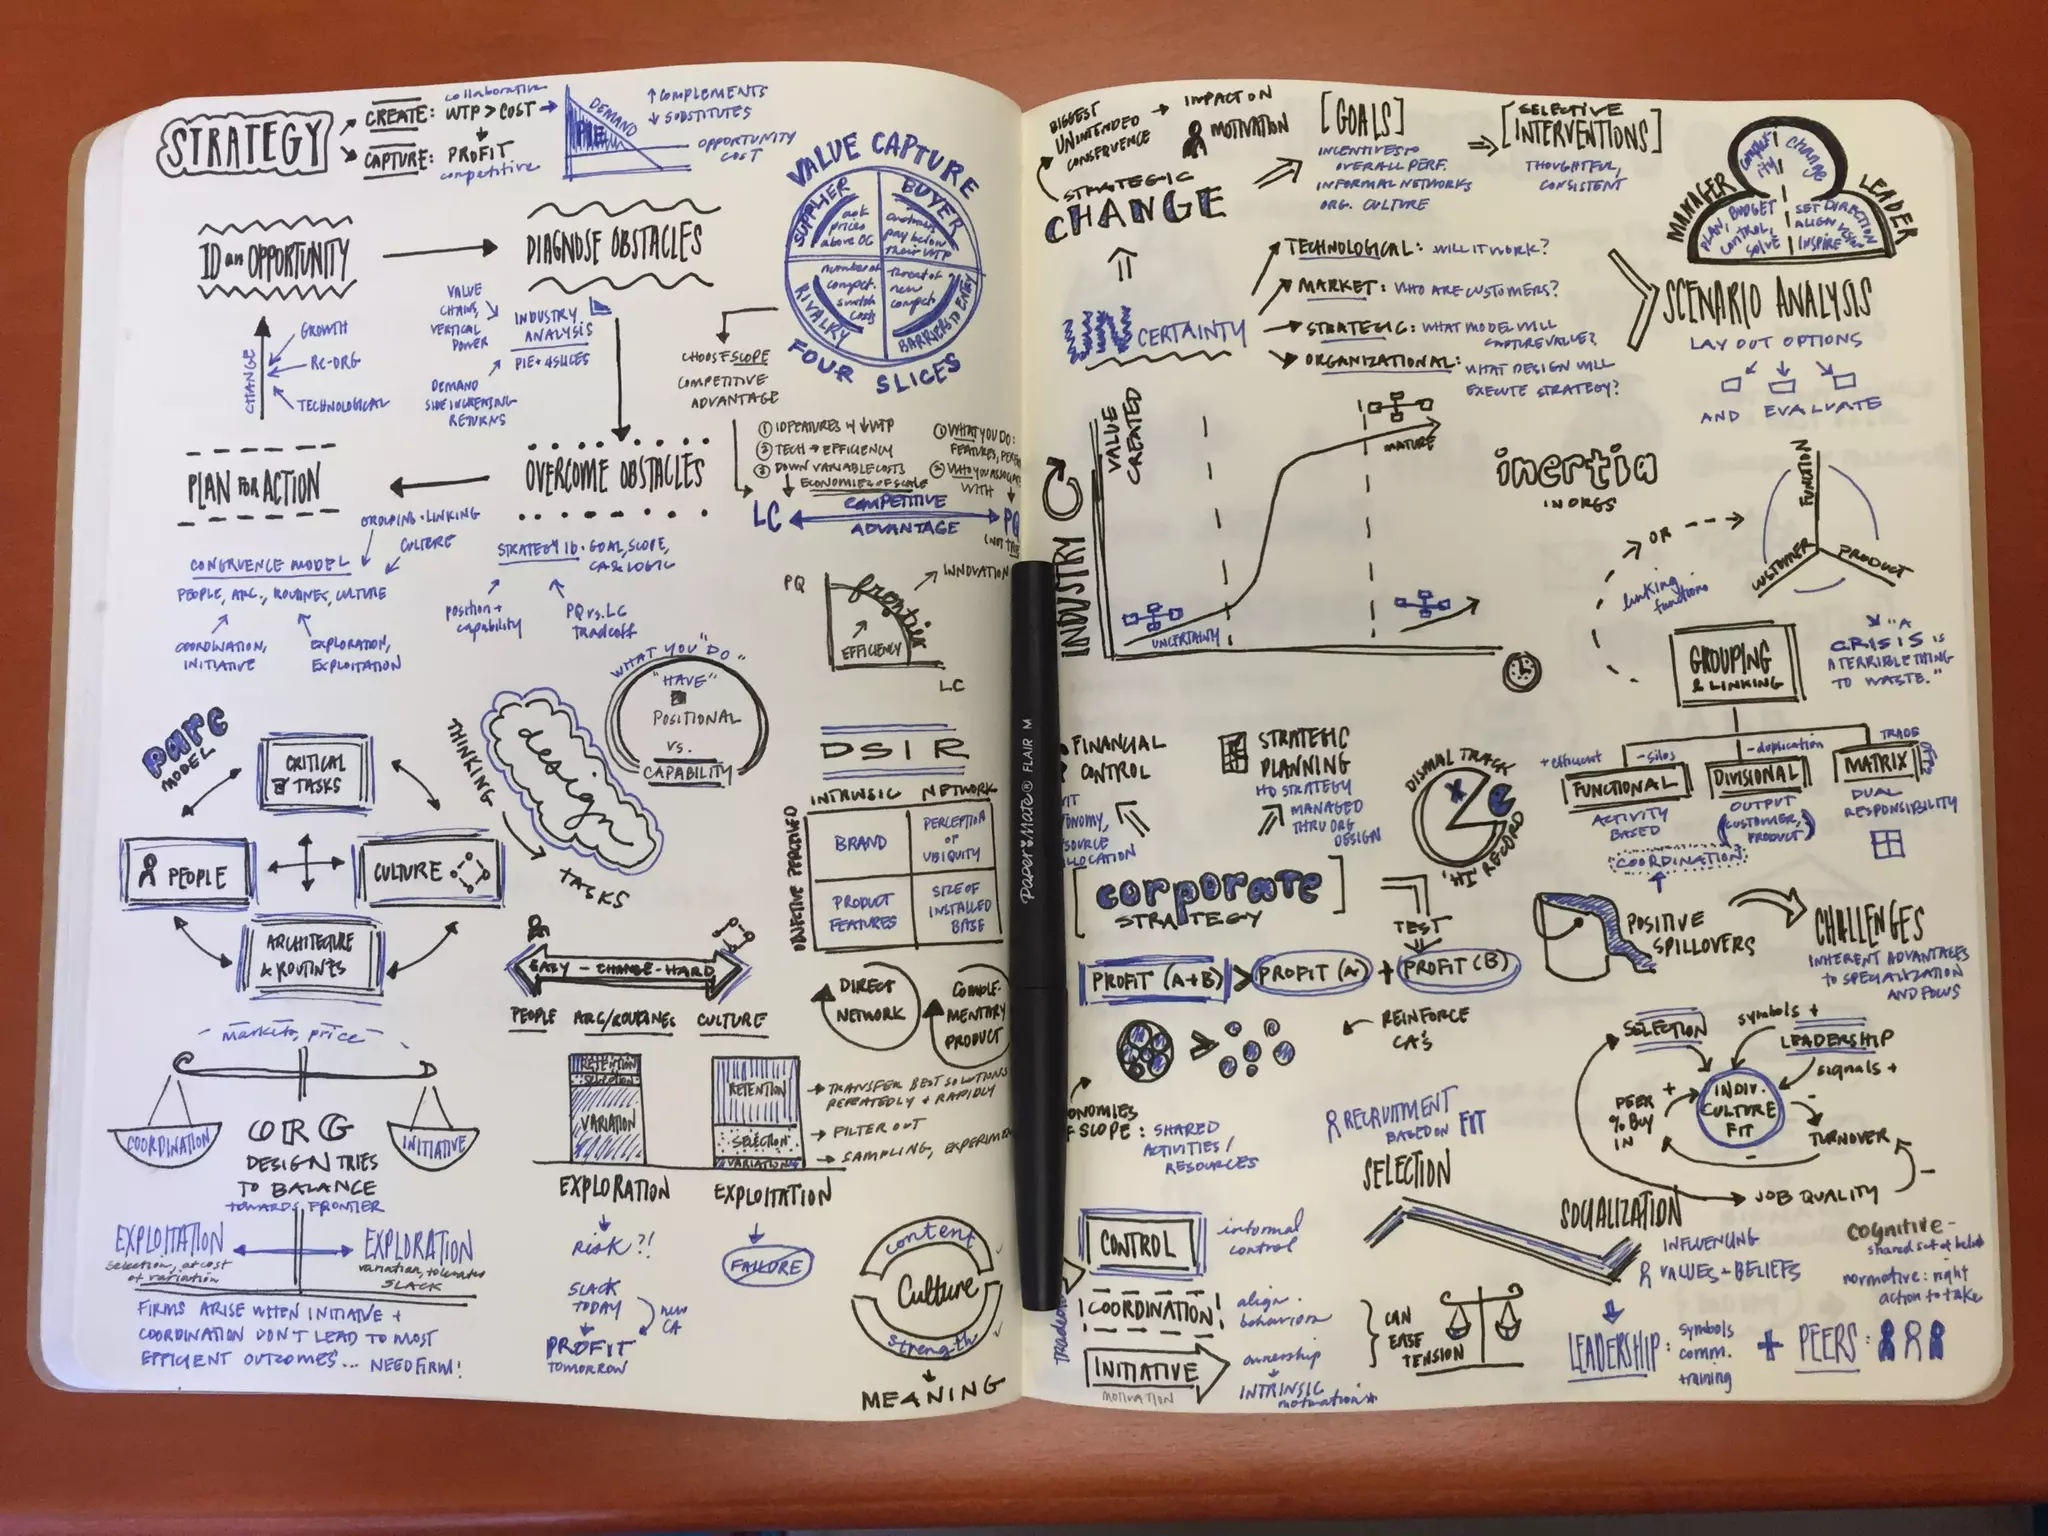 STRATEGY
CREATE:
collaborative
WTP > COST
CAPTURE:
PROFIT
competitive
DEMAND
PIE
↑ COMPLEMENTS
↓ SUBSTITUTES
OPPORTUNITY
COST
VALUE CAPTURE
SUPPLIER
ask
prices
above OC
BUYER
customers
pay below
their WTP
RIVALRY
number of
compet.
switch
costs
BARRIERS TO ENTRY
threat of
new
compet.
FOUR SLICES
ID an OPPORTUNITY
DIAGNOSE OBSTACLES
CHANGE
GROWTH
RE-ORG
TECHNOLOGICAL
VALUE
CHAINS,
VERTICAL
POWER
INDUSTRY
ANALYSIS
PIE + 4 SLICES
DEMAND
SIDE INCREASING
RETURNS
CHOOSE SCOPE
COMPETITIVE
ADVANTAGE
PLAN FOR ACTION
OVERCOME OBSTACLES
① ID FEATURES ↓ WTP
② TECH → EFFICIENCY
③ DOWN VARIABLE COSTS
ECONOMIES OF SCALE
① WHAT YOU DO:
FEATURES,
② WHO YOU
WITH
LC
COMPETITIVE
ADVANTAGE
PQ
GROUPING + LINKING
CULTURE
CONGRUENCE MODEL
PEOPLE, ARC., ROUTINES, CULTURE
COORDINATION,
INITIATIVE
EXPLORATION,
EXPLOITATION
STRATEGY ID · GOAL, SCOPE,
CA & LOGIC
position +
capability
PQ vs. LC
tradeoff
PQ
frontier
INNOVATION
EFFICIENCY
LC
WHAT YOU "DO"
"HAVE"
POSITIONAL
vs.
CAPABILITY
parc
MODEL
CRITICAL
TASKS
PEOPLE
CULTURE
ARCHITECTURE
& ROUTINES
THINKING
design
TASKS
DSIR
INTRINSIC
NETWORK
OBJECTIVE PERCEIVED
BRAND
PERCEPTION
OF
UBIQUITY
PRODUCT
FEATURES
SIZE OF
INSTALLED
BASE
EASY - CHANGE - HARD
PEOPLE
ARC/ROUTINES
CULTURE
DIRECT
NETWORK
COMPLE-
MENTARY
PRODUCT
- markets, price -
COORDINATION
INITIATIVE
ORG
DESIGN TRIES
TO BALANCE
TOWARDS FRONTIER
EXPLOITATION
selection, at cost
of variation
EXPLORATION
variation, tolerates
SLACK
FIRMS ARISE WHEN INITIATIVE +
COORDINATION DON'T LEAD TO MOST
EFFICIENT OUTCOMES... NEED FIRM!
RETENTION
SELECTION
VARIATION
EXPLORATION
RETENTION
SELECTION
VARIATION
EXPLOITATION
→ TRANSFER BEST SOLUTIONS
REPEATEDLY + RAPIDLY
→ FILTER OUT
→ SAMPLING,
RISK?!
SLACK
TODAY
NEW
CA
PROFIT
TOMORROW
FAILURE
content
Culture
strength
MEANING
Paper Mate® FLAIR M
BIGGEST
UNINTENDED
CONSEQUENCE
IMPACT ON
MOTIVATION
STRATEGIC
CHANGE
[GOALS]
INCENTIVES TO
OVERALL PERF.
INFORMAL NETWORKS
ORG. CULTURE
[SELECTIVE
INTERVENTIONS]
THOUGHTFUL,
CONSISTENT
MANAGER
LEADER
change
PLAN, BUDGET
CONTROL,
SOLVE
SET DIRECTION
ALIGN VISION
INSPIRE
UNCERTAINTY
TECHNOLOGICAL: WILL IT WORK?
MARKET: WHO ARE CUSTOMERS?
STRATEGIC: WHAT MODEL WILL
CAPTURE VALUE?
ORGANIZATIONAL: WHAT DESIGN WILL
EXECUTE STRATEGY?
SCENARIO ANALYSIS
LAY OUT OPTIONS
AND EVALUATE
INDUSTRY
VALUE
CREATED
UNCERTAINTY
MATURE
inertia
IN ORGS
OR
linking
functions
FUNCTION
CUSTOMER
PRODUCT
"A
CRISIS IS
A TERRIBLE THING
TO WASTE."
GROUPING
& LINKING
+ efficient
- silos
- duplication
TRADE
OFFS
FUNCTIONAL
DIVISIONAL
MATRIX
ACTIVITY
BASED
OUTPUT
(CUSTOMER,
PRODUCT)
DUAL
RESPONSIBILITY
COORDINATION
FINANCIAL
CONTROL
STRATEGIC
PLANNING
HQ STRATEGY
MANAGED
THRU ORG
DESIGN
DISMAL TRACK
RECORD
[corporate]
STRATEGY
TEST
PROFIT (A+B) > PROFIT (A) + PROFIT (B)
REINFORCE
CA'S
POSITIVE
SPILLOVERS
CHALLENGES
INHERENT ADVANTAGES
TO SPECIALIZATION
AND FOCUS
SCOPE: SHARED
ACTIVITIES /
RESOURCES
RECRUITMENT
BASED ON FIT
SELECTION
SELECTION
symbols +
LEADERSHIP
signals +
PEER
% BUY
IN
INDIV.
CULTURE
FIT
TURNOVER
JOB QUALITY
SOCIALIZATION
INFLUENCING
VALUES + BELIEFS
cognitive -
shared set of beliefs
normative: right
action to take
CONTROL
informal
control
COORDINATION
align
behavior
INITIATIVE
MOTIVATION
ownership
INTRINSIC
motivation
CAN
EASE
TENSION
LEADERSHIP:
symbols
comm.
training
+ PEERS: